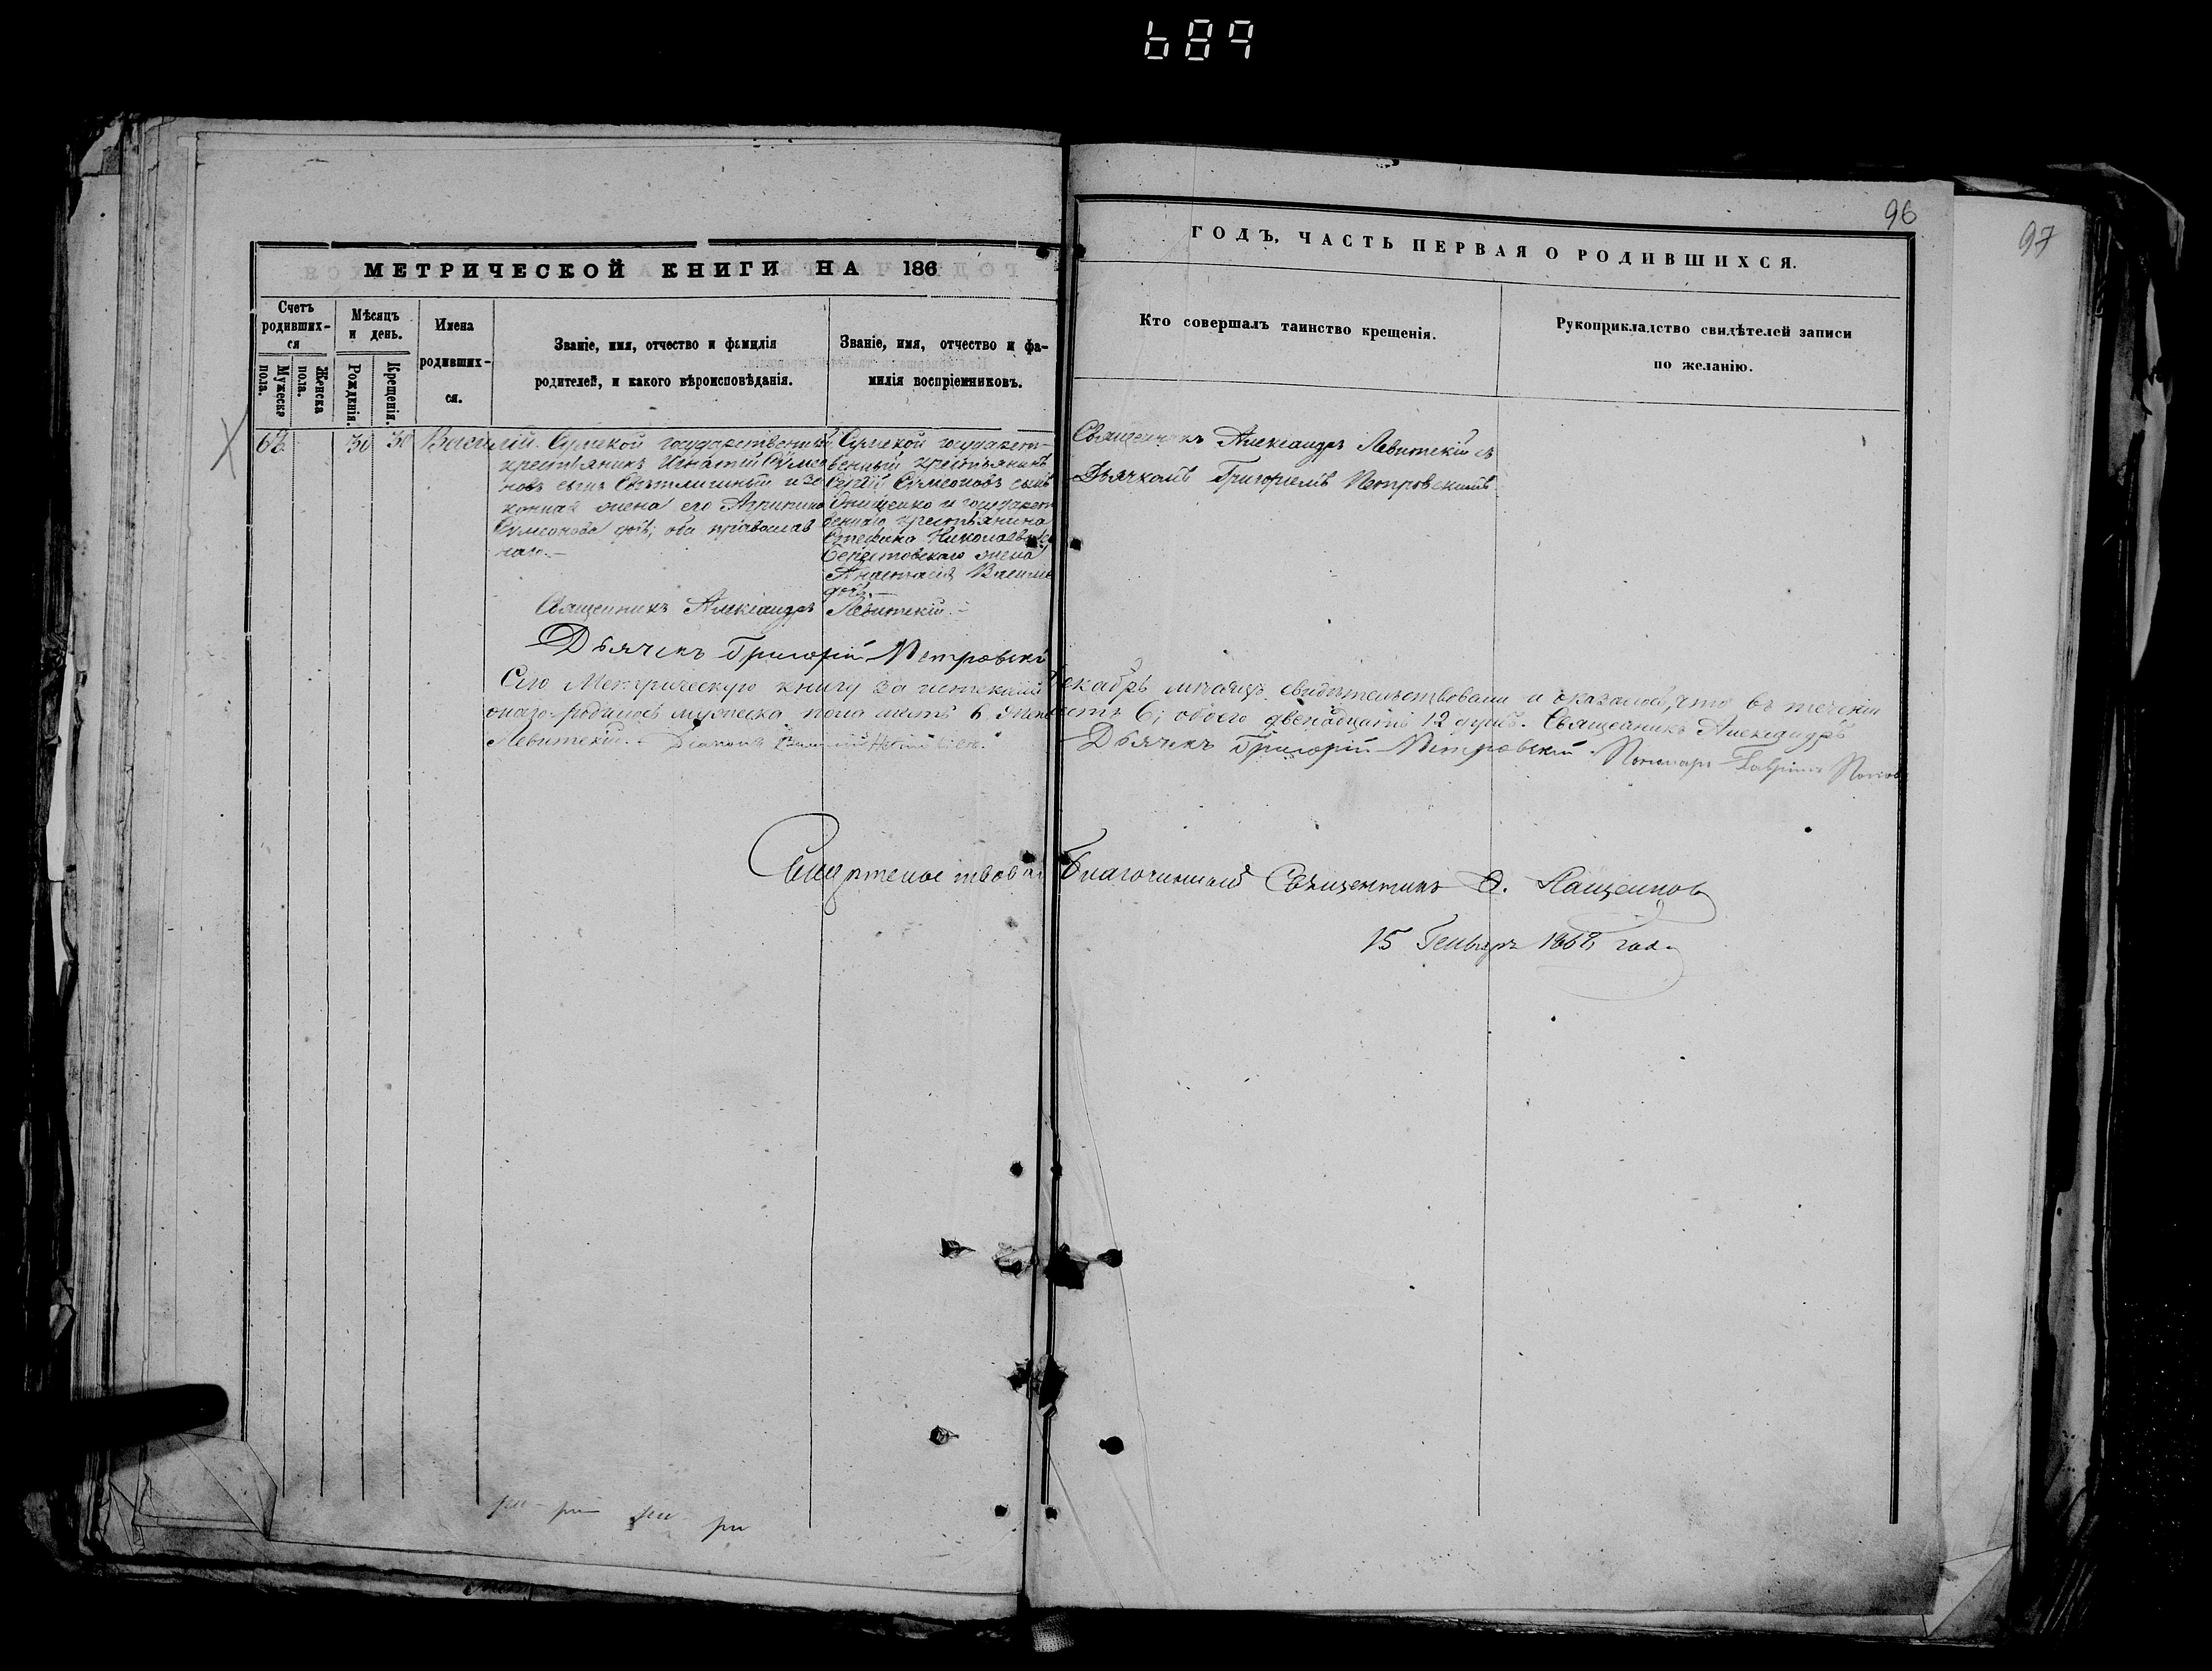 689
96
97
МЕТРИЧЕСКОЙ КНИГИ НА 186
ГОДЪ, ЧАСТЬ ПЕРВАЯ О РОДИВШИХСЯ.
Счетъ родивших-ся
Мужеска пола.
Женска пола.
Мѣсяцъ и день.
Рожденія.
Крещенія.
Имена родивших-ся.
Званіе, имя, отчество и фамилія
родителей, и какого вѣроисповѣданія.
Званіе, имя, отчество и фа-
милія воспріемниковъ.
Кто совершалъ таинство крещенія.
Рукоприкладство свидѣтелей записи
по желанію.
30 30 Василій
Сумской государственный
крестьянинъ Игнатій Сумео
новъ сынъ Свѣтличный и за
конная жена его Агрипина
Сумеонова дочь; оба православ
наго.-
Сумской государст-
венный крестьянинъ
Сергій Сумеоновъ сынъ
Онищенко и государст
веннаго крестьянина
Стефана Николаева
Берестовскаго жена
Анастасія Василіе
дочь.-
Священникъ Александръ Левитскій съ
Дьячкомъ Григоріемъ Петровскимъ
Священникъ Александръ Левитскій.-
Дьячекъ Григорій Петровскій
Сію Метрическую книгу за истекшій Декабрь мѣсяцъ свидѣтельствовали и оказалось, что въ теченіи
онаго родилось мужеска пола шесть 6, женска шесть 6; обоего двенадцать 12 душъ. Священникъ Александръ
Левитскій.- Діаконъ Дьячекъ Григорій Петровскій. Пономарь Гавріилъ
Свидѣтельствовалъ Благочинный Священникъ
15 Генваря 1868 года